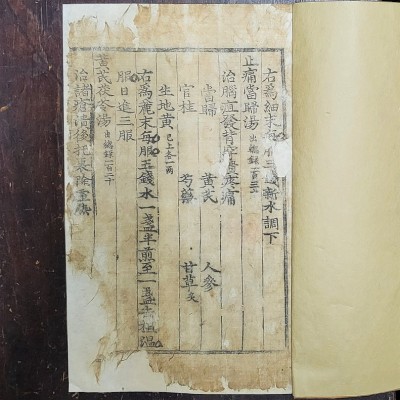 右為細末每服三錢新水調下
止痛當歸湯 出總錄一百三
治腦疽發背疼痛
當歸 黃芪 人參
官桂 芍藥 甘草 炙
生地黃 已上各一兩
右為麄末每服五錢水一盞半煎至一盞去柤溫
服日進三服
黃芪茯苓湯 出總錄一百二十
治諸瘡潰後托裏除